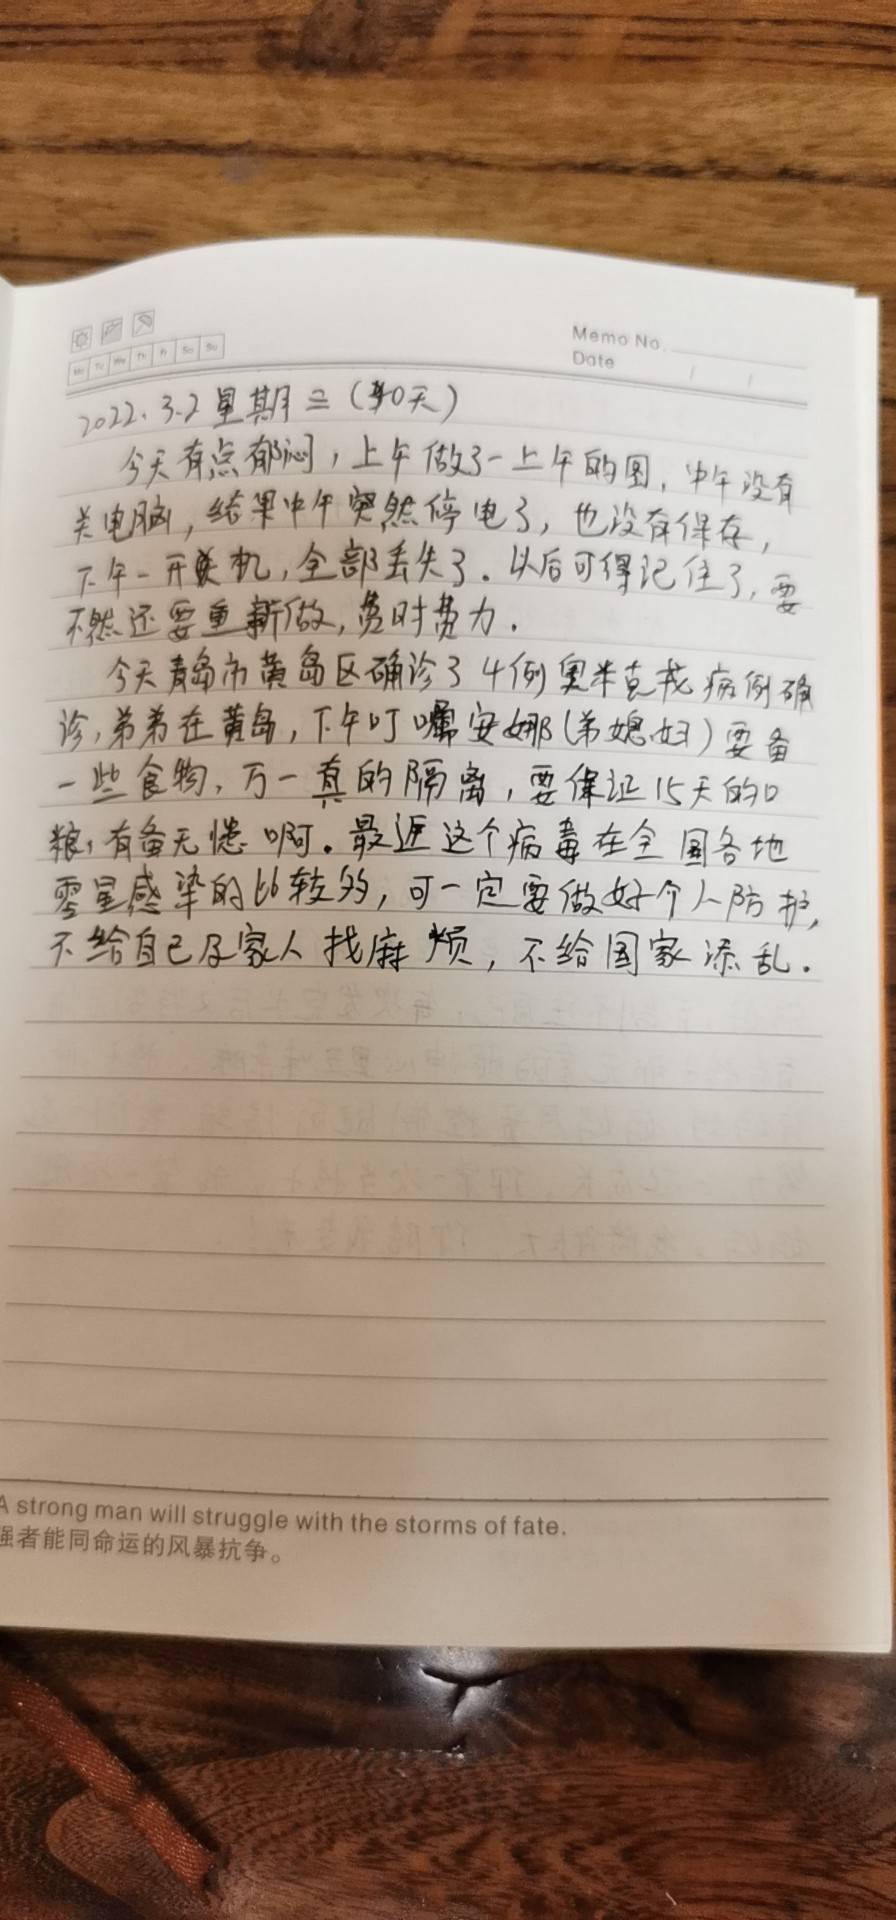 Memo No.
Date / /
Mo Tu We Th Fr Sa Su
2022.3.2 星期三(第40天)
今天有点郁闷,上午做了一上午的图,中午没有
关电脑,结果中午突然停电了,也没有保存,
下午一开机,全部丢失了.以后可得记住了,要
不然还要重新做,费时费力.
今天青岛市黄岛区确诊了4例奥米克戎病例确
诊,弟弟在黄岛,下午叮嘱安娜(弟媳妇)要备
一些食物,万一真的隔离,要保证15天的口
粮,有备无患啊.最近这个病毒在全国各地
零星感染的比较多,可一定要做好个人防护,
不给自己及家人找麻烦,不给国家添乱.
A strong man will struggle with the storms of fate.
强者能同命运的风暴抗争。